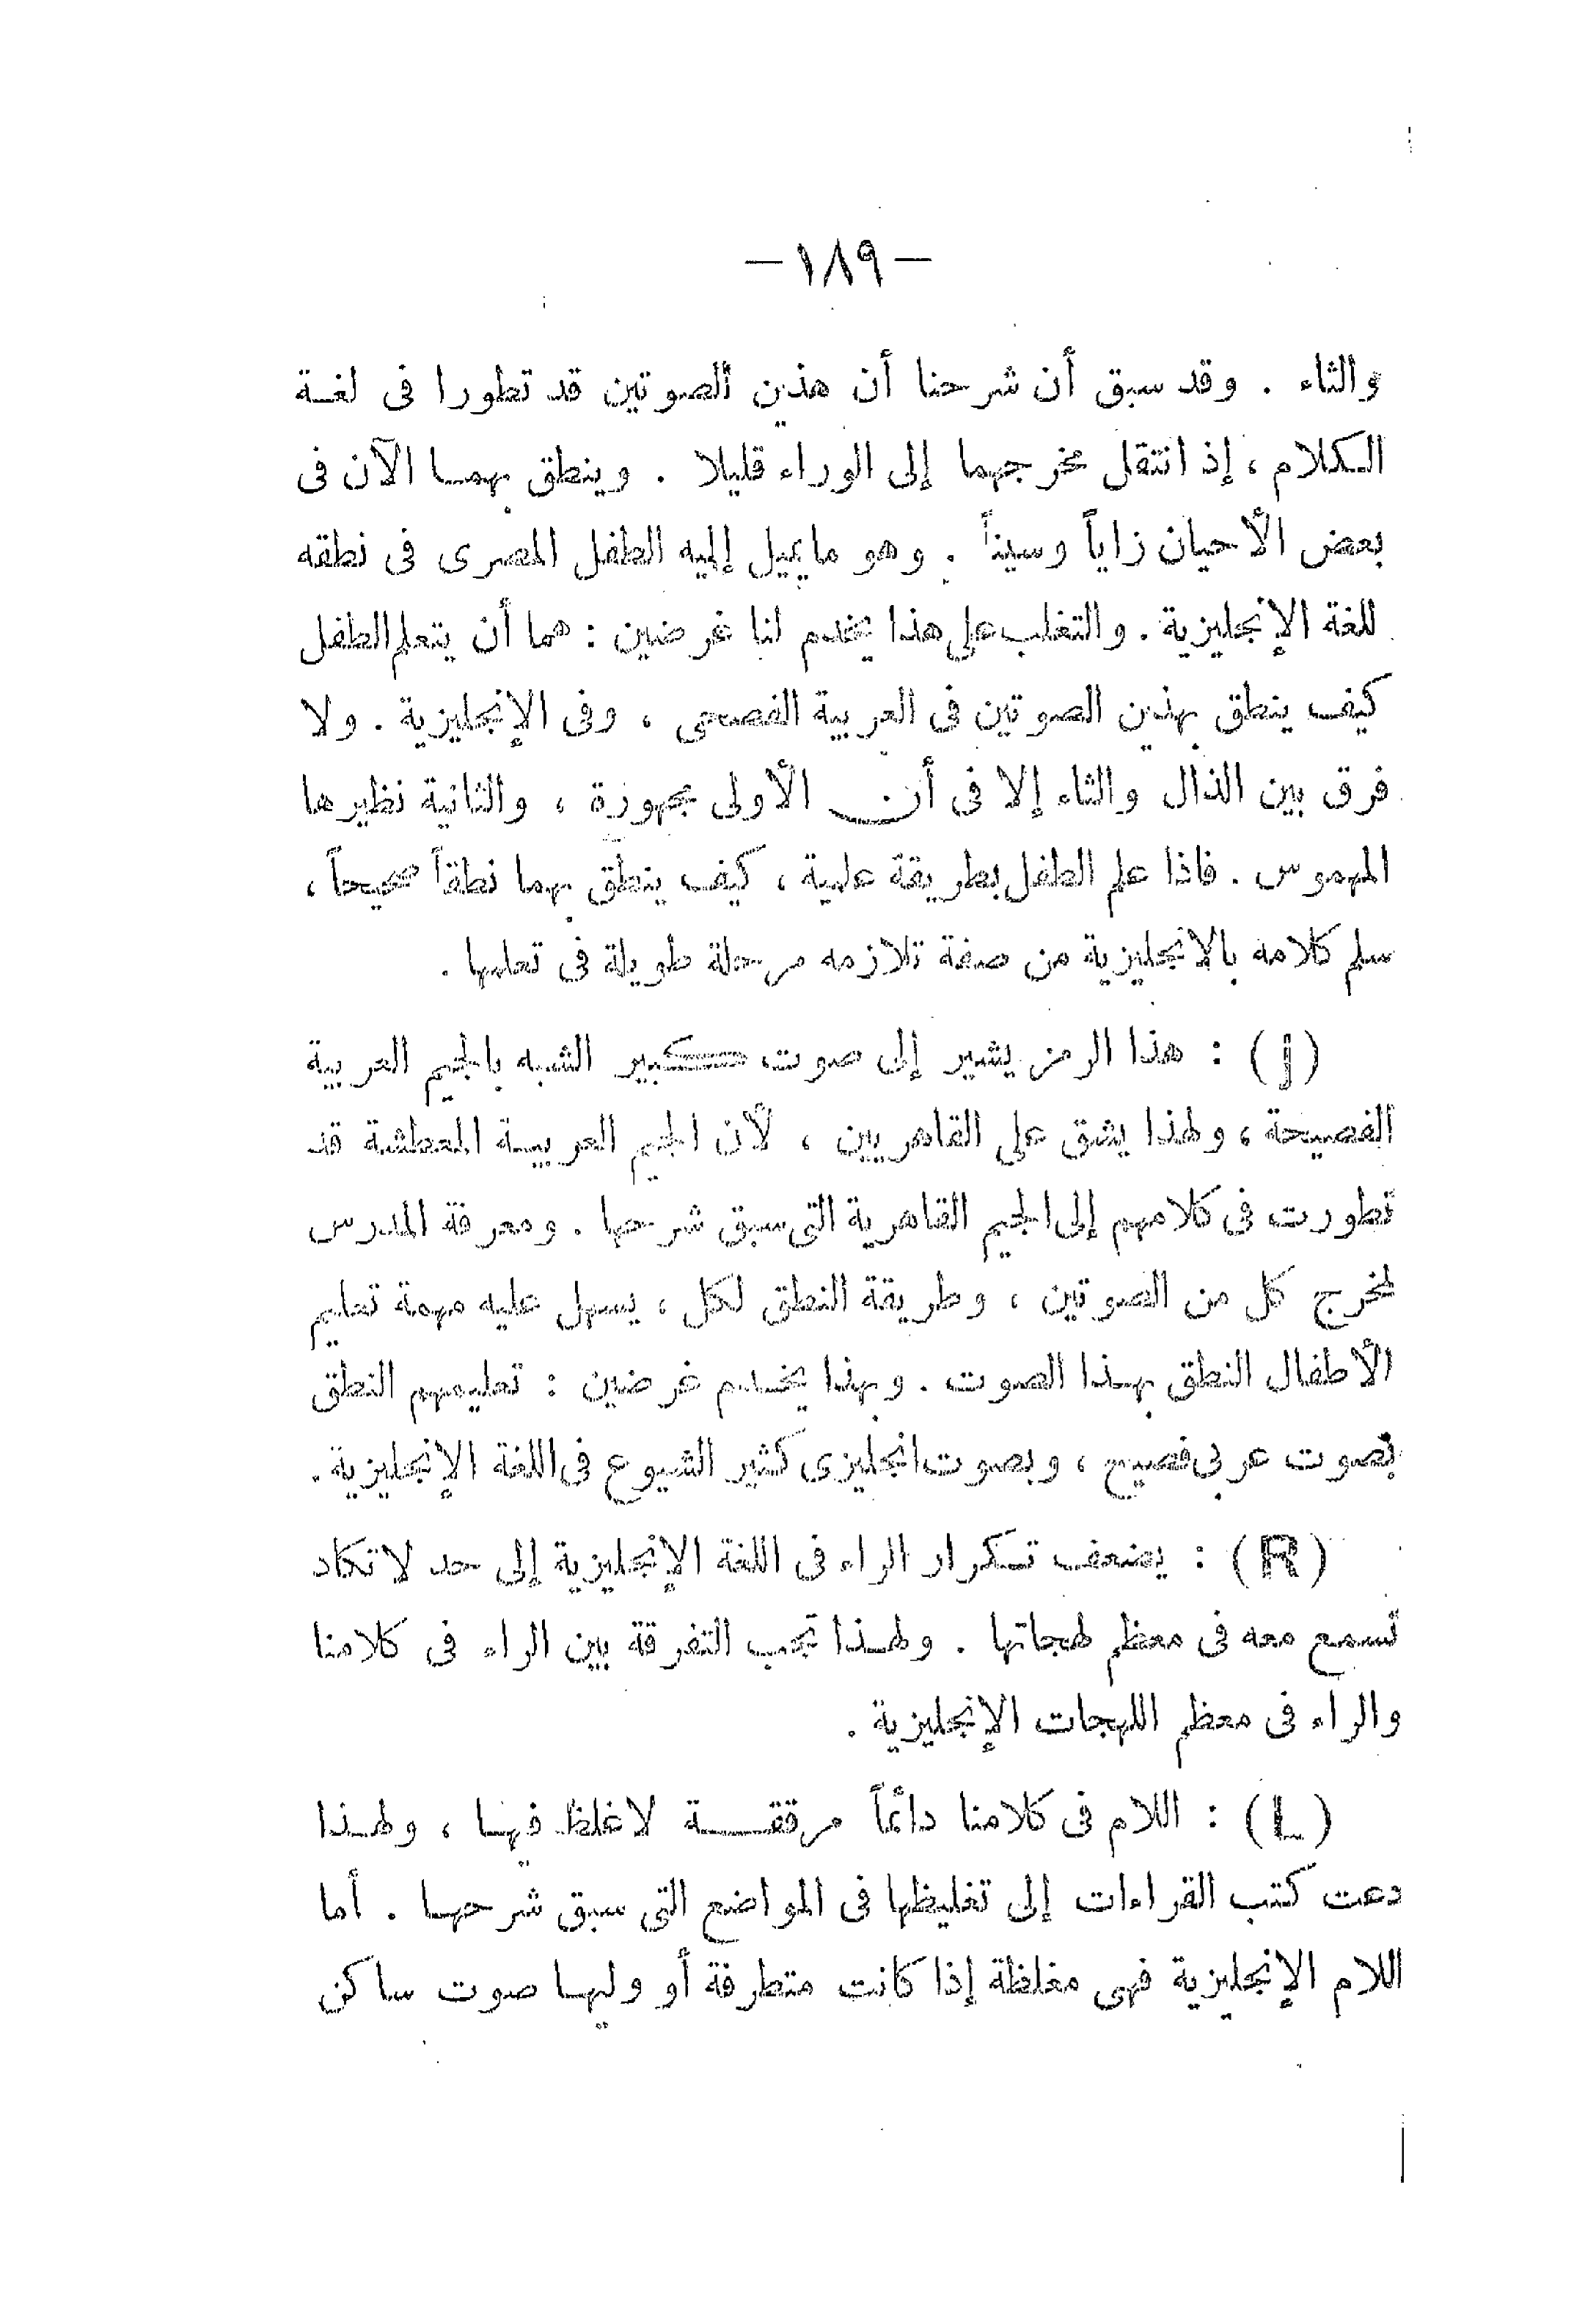 — ١٨٩ —
والثاء . وقد سبق أن شرحنا أن هذين الصوتين قد تطورا فى لغة
الكلام ، إذ انتقل مخرجهما إلى الوراء قليلا . وينطق بهما الآن فى
بعض الأحيان زاياً وسيناً . وهو ما يميل إليه الطفل المصرى فى نطقه
للغة الإنجليزية . والتغلب على هذا يخدم لنا غرضين : هما أن يتعلم الطفل
كيف ينطق بهذين الصوتين فى العربية الفصحى ، وفى الإنجليزية . ولا
فرق بين الذال والثاء إلا فى أن الأولى مجهورة ، والثانية نظيرها
المهموس . فاذا علم الطفل بطريقة علمية ، كيف ينطق بهما نطقاً صحيحاً ،
سلم كلامه بالانجليزية من صفة تلازمه مرحلة طويلة فى تعلمها .
(J) : هذا الرمز يشير إلى صوت كبير الشبه بالجيم العربية
الفصيحة ، ولهذا يشق على القاهريين ، لأن الجيم العربية المعطشة قد
تطورت فى كلامهم إلى الجيم القاهرية التى سبق شرحها . ومعرفة المدرس
لمخرج كل من الصوتين ، وطريقة النطق لكل ، يسهل عليه مهمة تعليم
الأطفال النطق بهذا الصوت . وبهذا يخدم غرضين : تعليمهم النطق
بصوت عربى فصيح ، وبصوت انجليزى كثير الشيوع فى اللغة الإنجليزية .
(R) : يضعف تكرار الراء فى اللغة الإنجليزية إلى حد لا تكاد
تسمع معه فى معظم لهجاتها . ولهذا تجب التفرقة بين الراء فى كلامنا
والراء فى معظم اللهجات الإنجليزية .
(L) : اللام فى كلامنا دائماً مرققة لا غلظ فيها ، ولهذا
دعت كتب القراءات إلى تغليظها فى المواضع التى سبق شرحها . أما
اللام الإنجليزية فهى مغلظة إذا كانت متطرفة أو وليها صوت ساكن